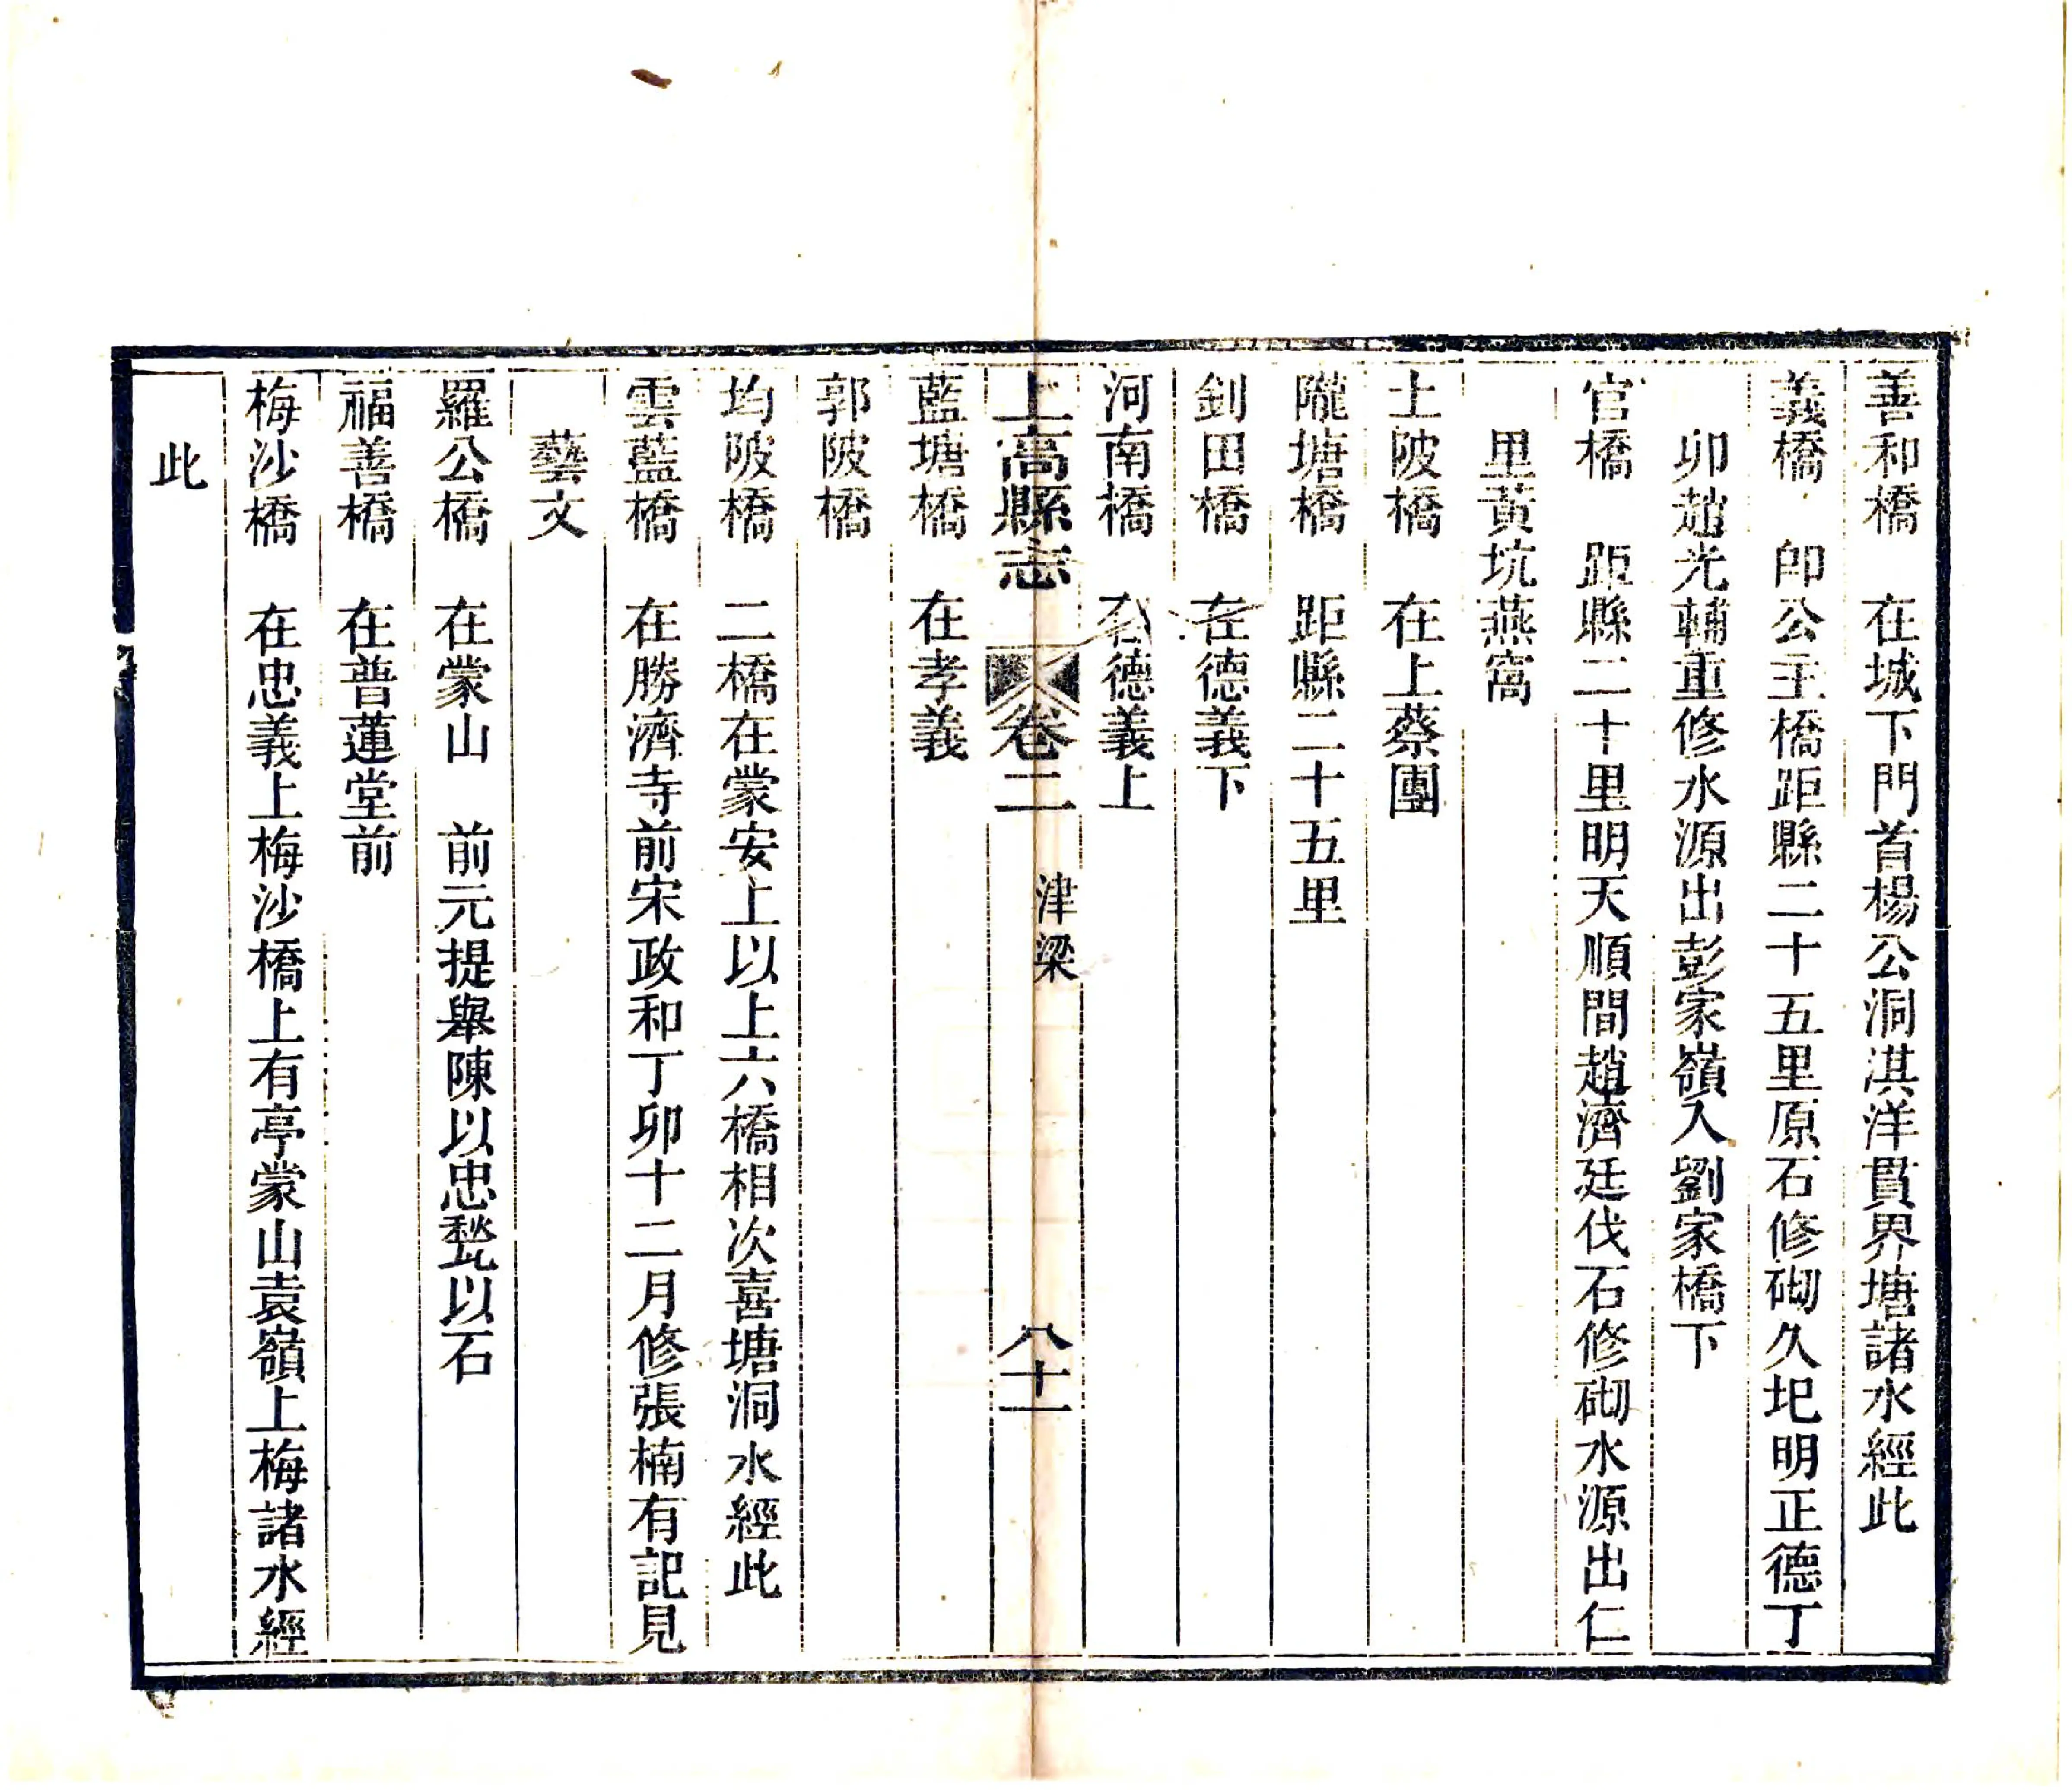 善和橋　在城下門首楊公洞淇洋貫界塘諸水經此
義橋　卽公主橋距縣二十五里原石修砌久圮明正德丁
卯趙光輔重修水源出彭家嶺入劉家橋下
官橋　距縣二十里明天順間趙濟廷伐石修砌水源出仁
里黃坑燕窩
土陂橋　在上蔡團
隴塘橋　距縣二十五里
釗田橋　在德義下
河南橋　在德義上
上高縣志　卷二　津梁　八十一
藍塘橋　在孝義
郭陂橋
均陂橋　二橋在蒙安上以上六橋相次喜塘洞水經此
雲藍橋　在勝濟寺前宋政和丁卯十二月修張楠有記見
藝文
羅公橋　在蒙山　前元提舉陳以忠甃以石
福善橋　在普蓮堂前
梅沙橋　在忠義上梅沙橋上有亭蒙山袁嶺上梅諸水經
此